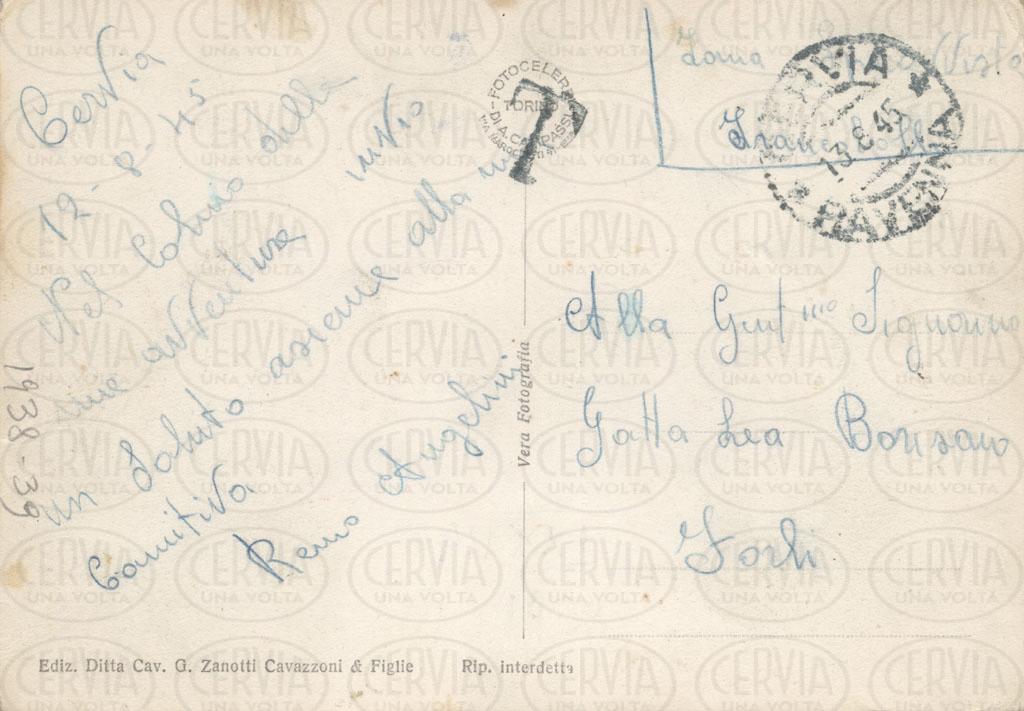 Cervia
12-8-45
Nel colmo della
mie avventure invio
un saluto assieme alla mia
comitiva
Remo Angelini
1938-39
FOTOCELERE
TORINO
DI A. CAMPASSI
T
Vera Fotografia
Zona
Francobolli
CERVIA
13.8.45
RAVENNA
Alla Gent.ma Signorina
Gatta Lea Bonsano
Forli
Ediz. Ditta Cav. G. Zanotti Cavazzoni & Figlie Rip. interdetta
CERVIA
UNA VOLTA